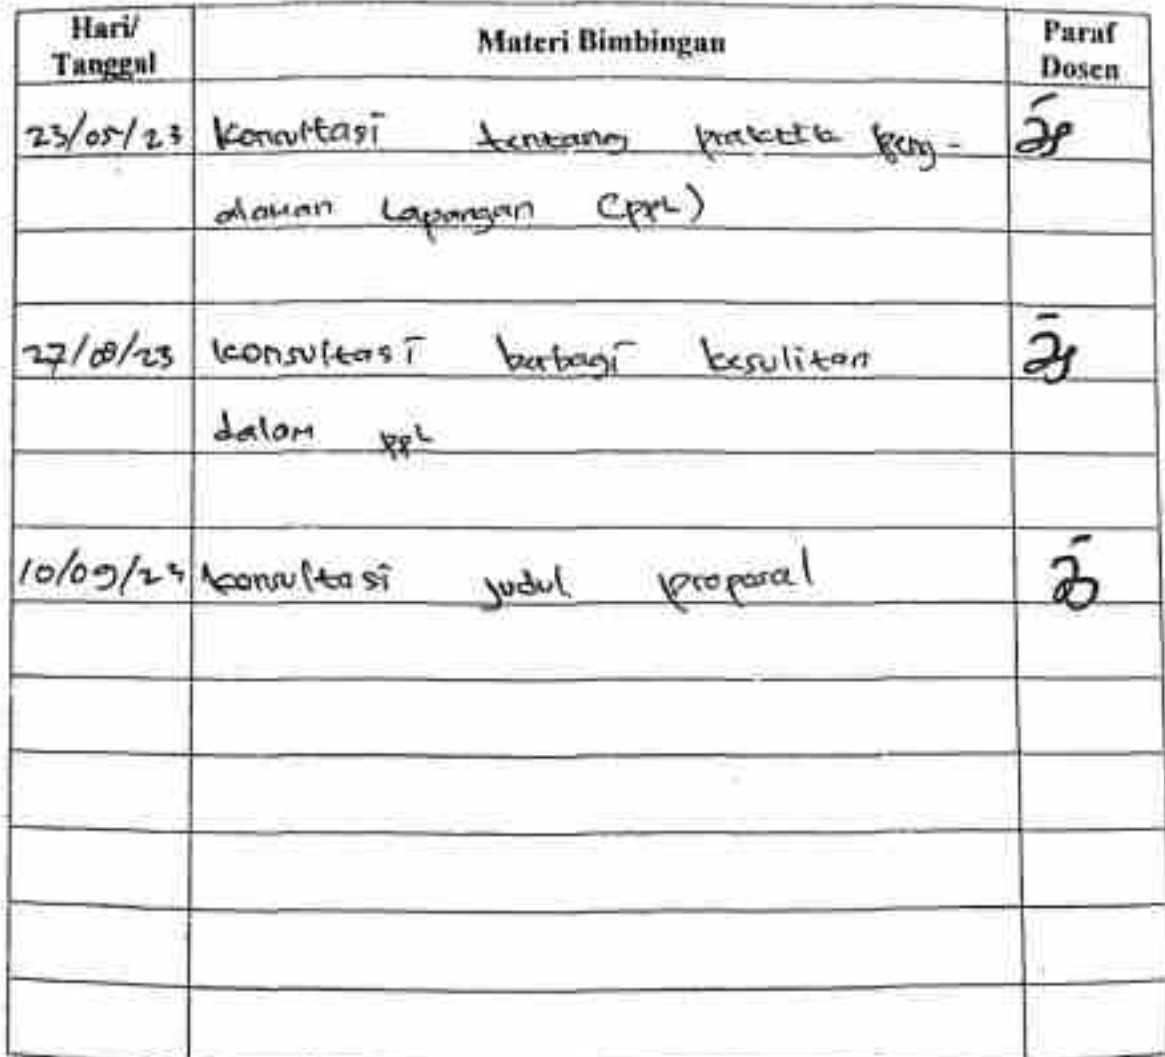 Hari/ Tanggal
Materi Bimbingan
Paraf Dosen
23/05/23 konsultasi tentang praktik peng-
alaman Lapangan (PPL)
27/08/23 konsultasi berbagi kesulitan
dalam PPL
10/09/23 konsultasi judul proposal